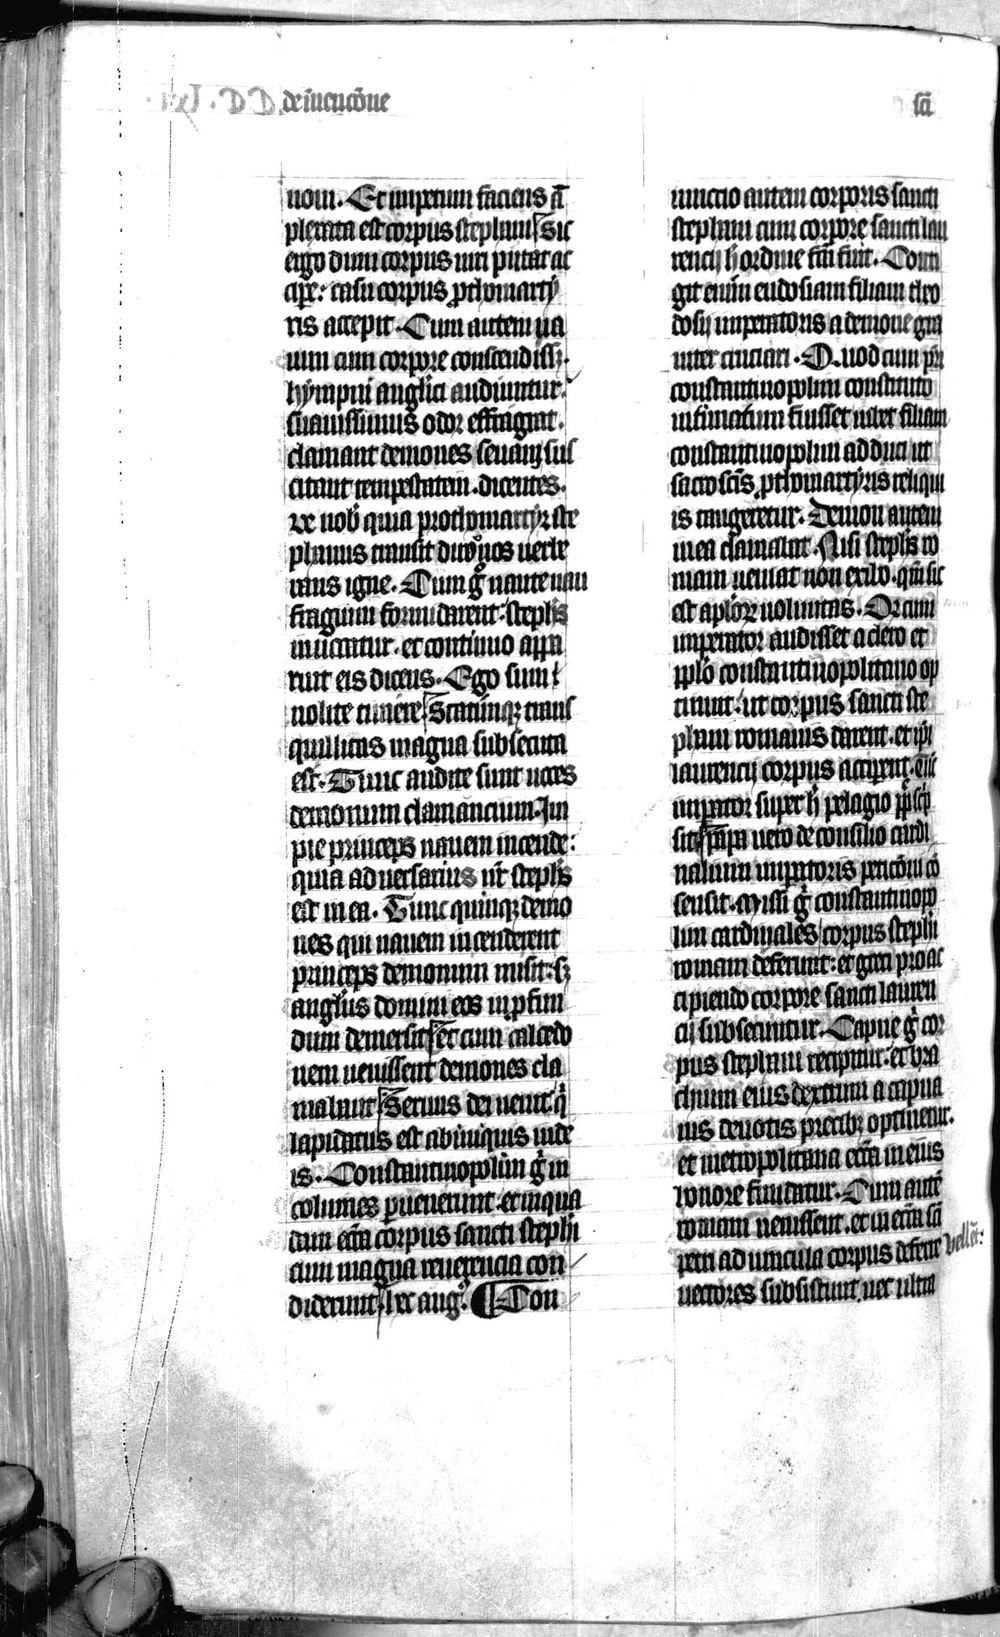 de iuencōne
sci
nom. Et impetum faciens ā
plexata est corpus stephani Sic
ergo dum corpus uiri putat ac
cipe: casu corpus p̄thomarty
ris accepit. Cum autem na
uim cum corpore conscendissz.
hympni anglici audiuntur.
suauissimus odor efflagrat.
clamant demones seuamqz sus
citant tempestatem. dicentes.
ve nob̄ quia prothomartyr ste
phanus transit dirō nos verbe
rans igne. Cum gͦ naute nau
fragium formidarent. steph̄s
inuocatur. et continuo appa
ruit eis dicens. Ego sum
nolite timere. Statimqz trans
quillitas magna subsecuta
est. Tunc audite sunt uoces
demonum clamancium. Im
pie princeps nauem incende:
quia aduersarius nr̄ steph̄s
est in ea. Tunc quinqz demo
nes qui nauem incenderent
princeps demonum misit: sz
angl̄us domini eos in p̄fun
dum demersit. et cum calcedo
nem uenissent demones cla
mabant. Seruus dei uenit. q̄
lapidatus est ab iniquis iude
is. Constantinopolim gͦ in
columes peruenerunt. et in qua
dam ecc̄ia corpus sancti steph̄i
cum magna reuerencia con
diderunt. hec augͦ. ¶ Con
iunctio autem corporis sancti
stephani cum corpore sancti lau
rencii h̄ ordine fc̄m fuit. Conti
git enim eudosiam filiam theo
dosii imperatoris a demone gra
uiter cruciari. Quod cum p̄ri
constantinopolim constituto
intimatum fuisset iubet filiam
constantinopolim adduci ut
sacrosc̄is p̄thomartyris reliqui
is tangeretur. Demon autem
in ea clamabat. Nisi steph̄s ro
mam ueniat non exibo. qm̄ sic
est ap̄lorz uoluntas. Qr cum
imperator audisset a clero et
ppl̄o constantinopolitano op
tinuit. ut corpus sancti ste
phani romanis darent. et ip̄i
laurencii corpus acciperent.
impator super h̄ pelagio pp̄ sc̄p
sit. papa uero de consilio cardi
nalium impatoris peticōni cō
sensit. Missi gͦ constantinopo
lim cardinales corpus steph̄i
romam deferunt: et greci pro ac
cipiendo corpore sancti lauren
cii subsecuntur. Capue gͦ cor
pus stephani recipitur. et bra
chium eius dextrum a capua
nis deuotis precibz optinetur.
et metropolitana ecc̄ia in eius
honore fundatur. Cum autē
romam uenissent. et in ecc̄ia sc̄i
petri ad uincula corpus deferre velle͞t:
uectores subsistunt. nec ultra